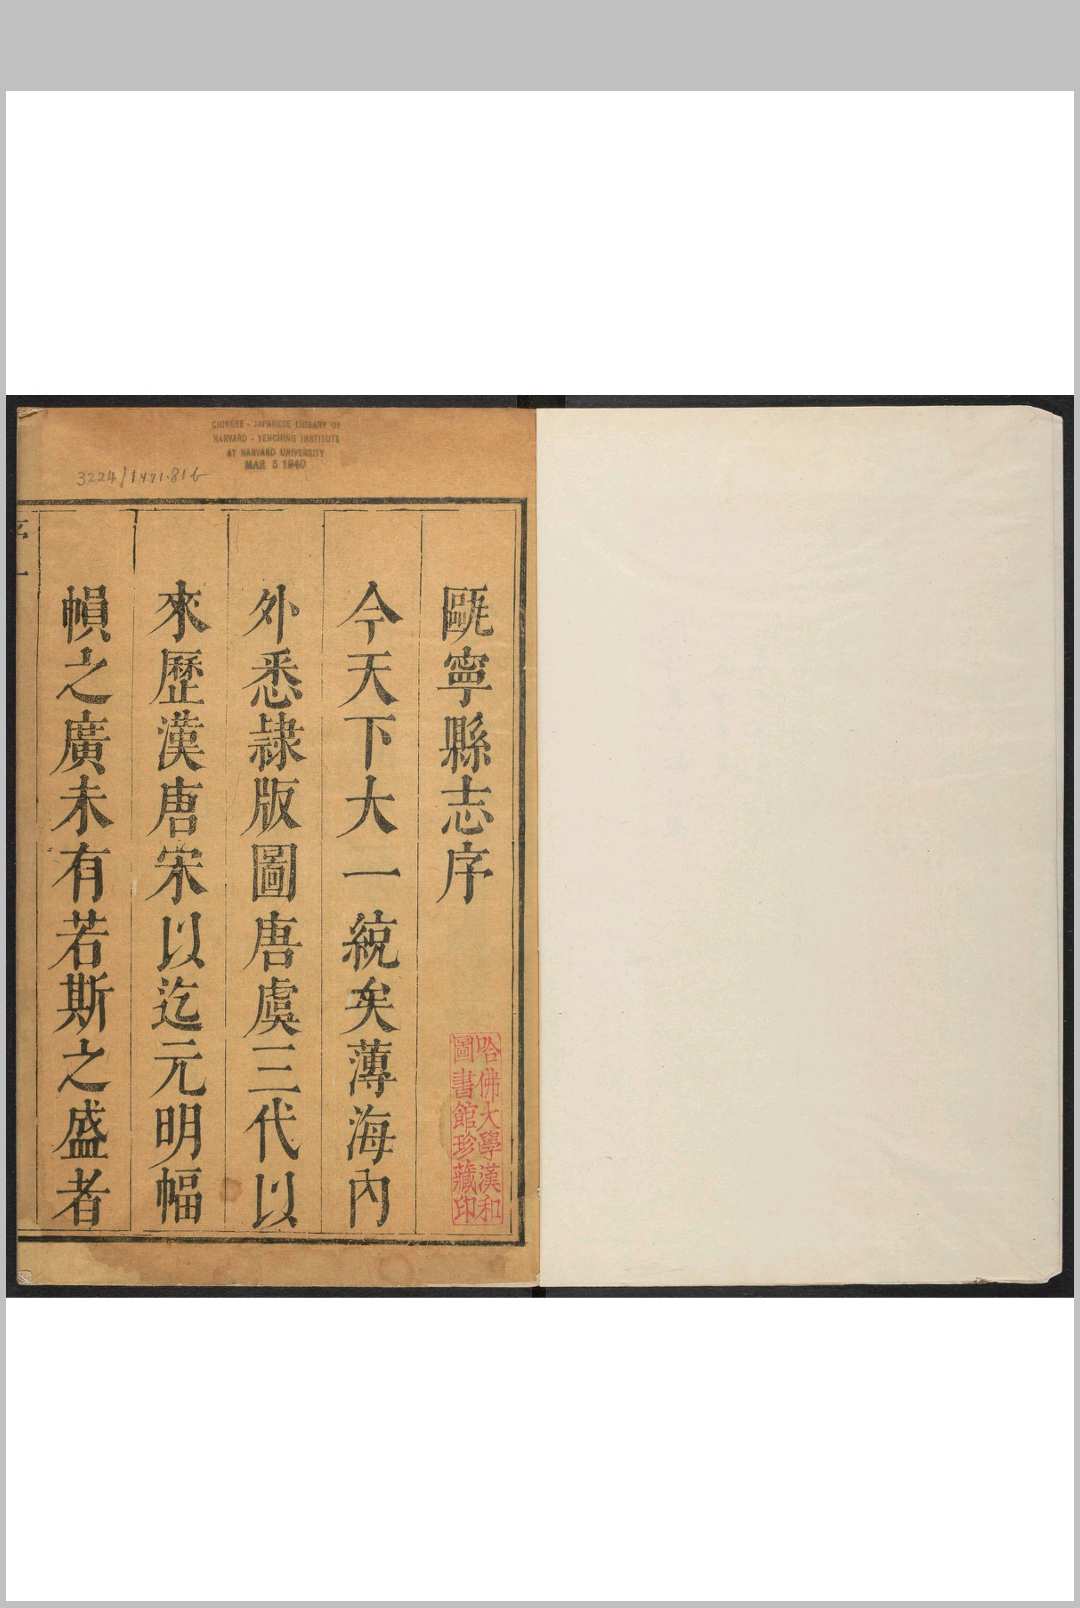 CHINESE - JAPANESE LIBRARY OF
HARVARD - YENCHING INSTITUTE
AT HARVARD UNIVERSITY
MAR 5 1940
3224/1471.81b
甌寧縣志序
今天下大一統矣薄海內
外悉隷版圖唐虞三代以
來歷漢唐宋以迄元明幅
幁之廣未有若斯之盛者
序一
哈佛大學漢和
圖書館珍藏印